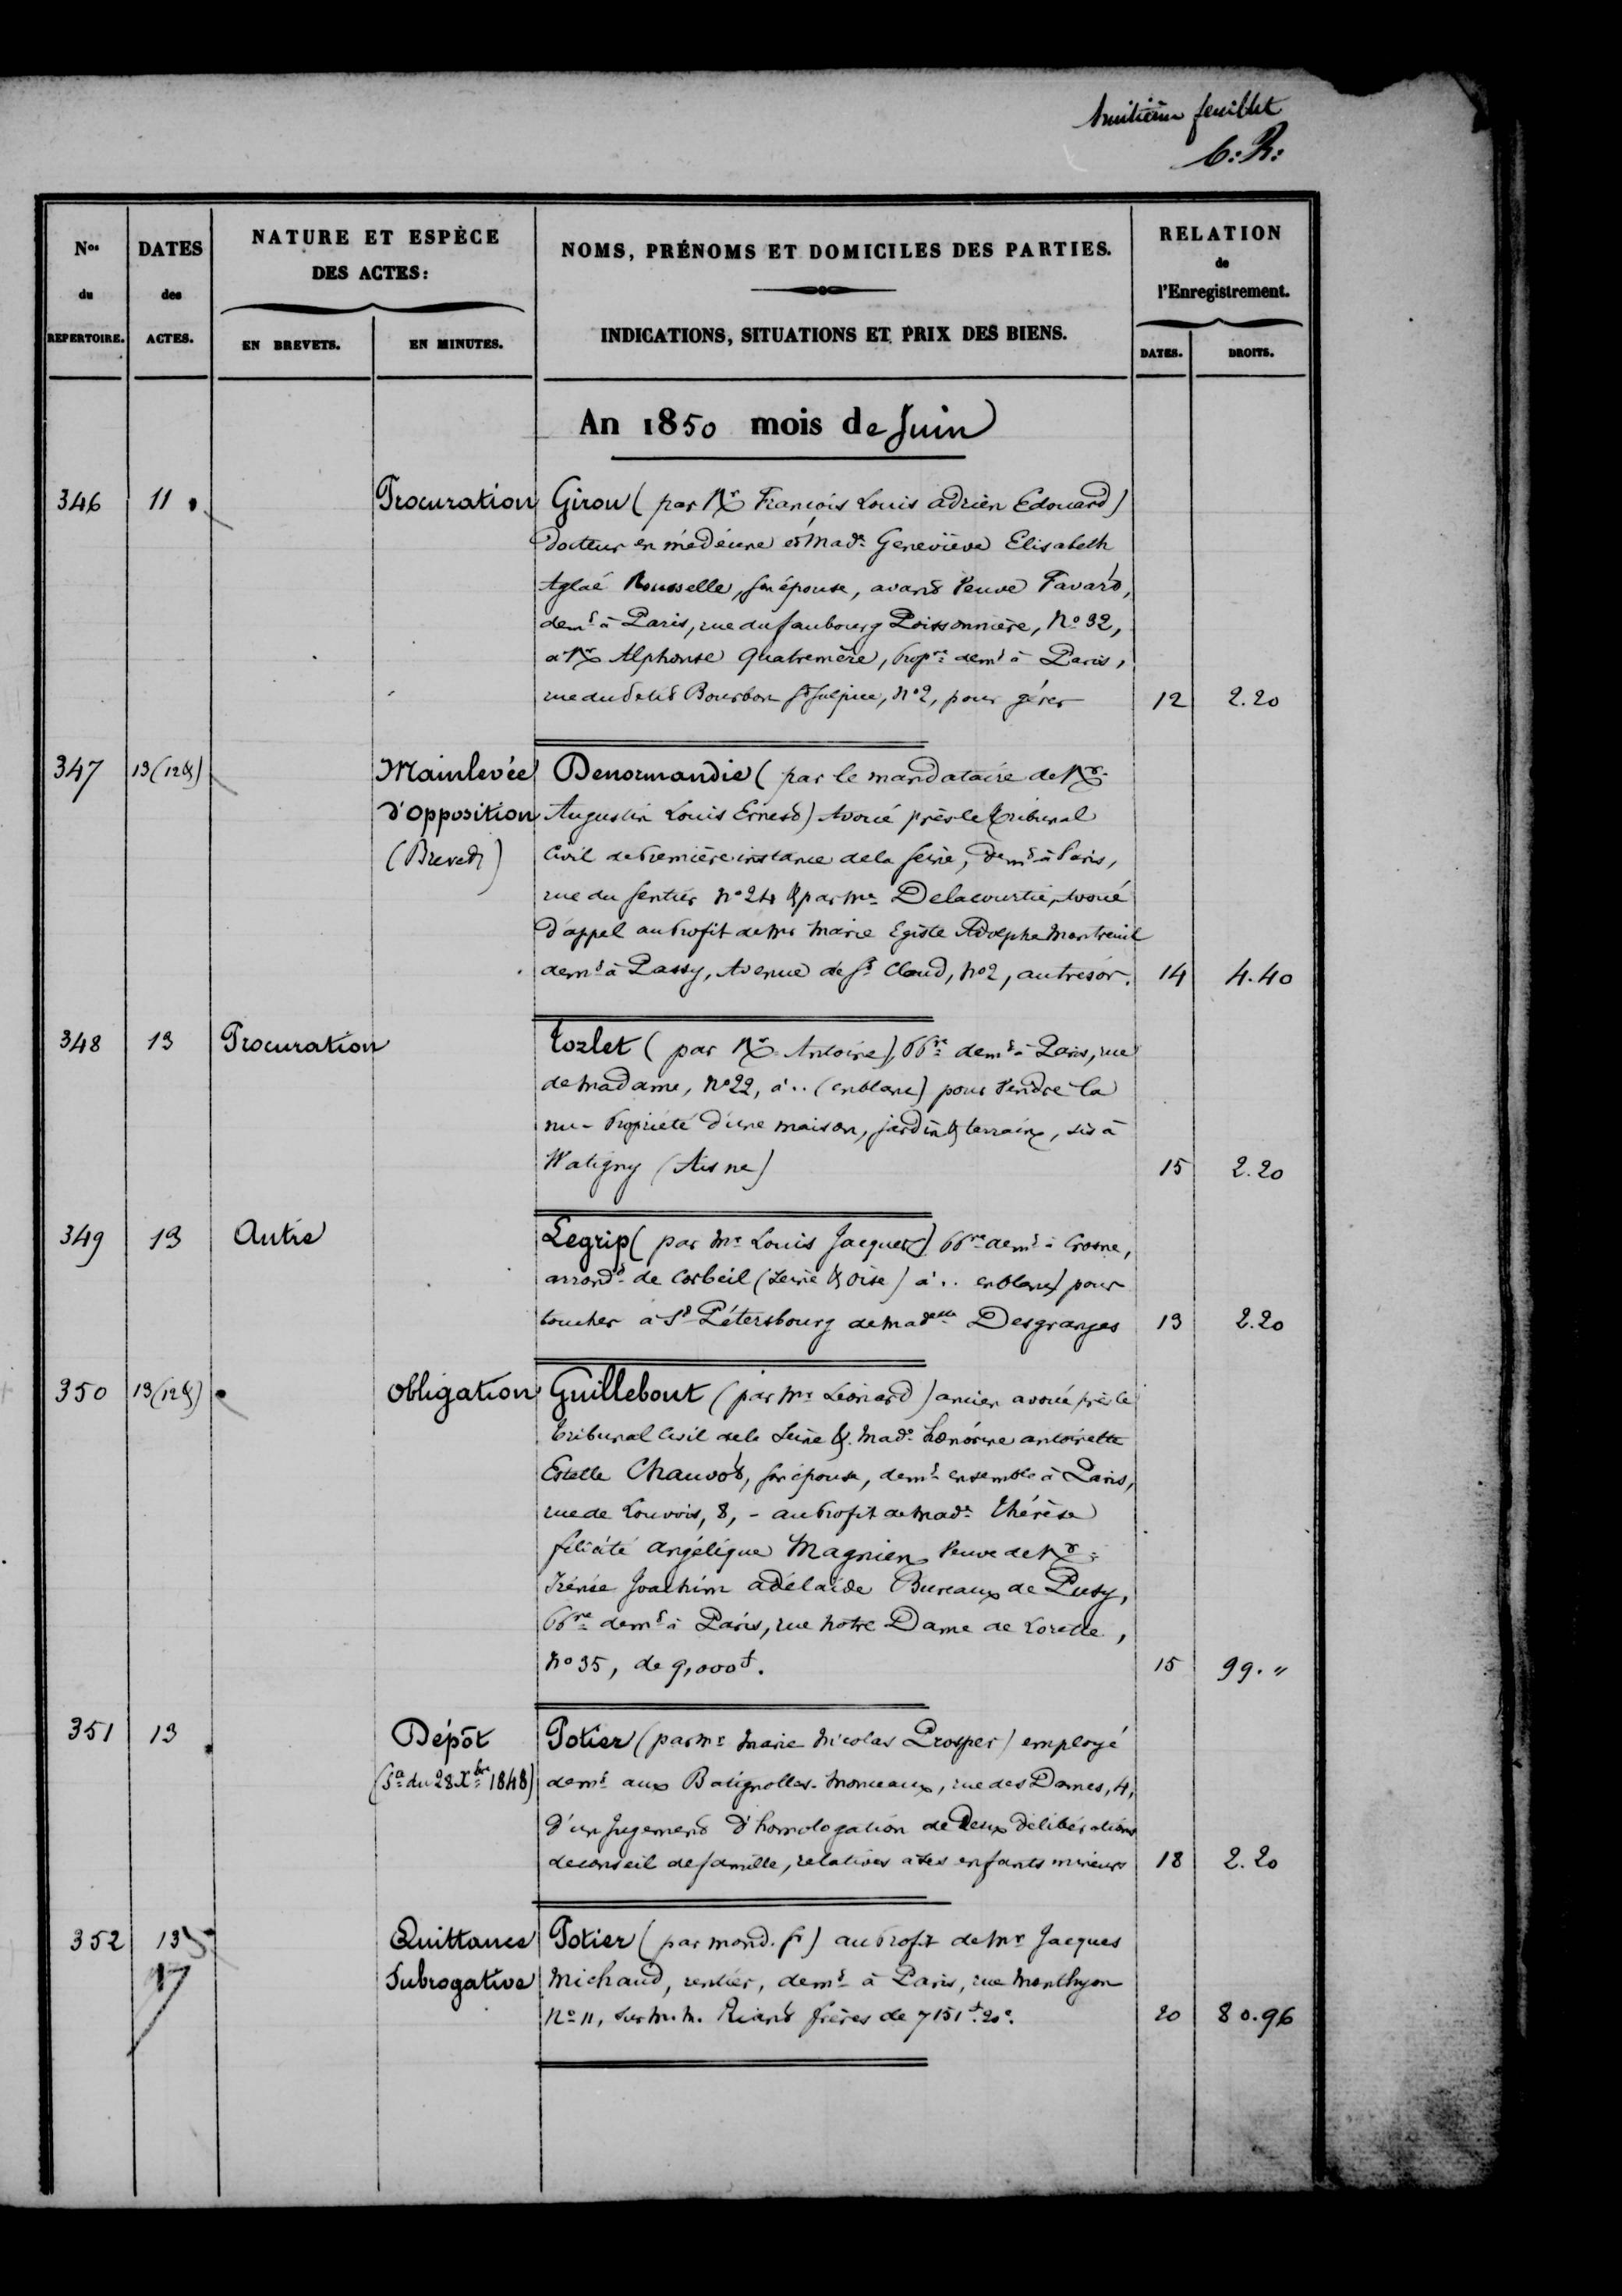 huitième feuillet
C: R:
Nos du REPERTOIRE. DATES des ACTES. NATURE ET ESPÈCE DES ACTES: EN BREVETS. EN MINUTES. NOMS, PRÉNOMS ET DOMICILES DES PARTIES. INDICATIONS, SITUATIONS ET PRIX DES BIENS. RELATION de l'Enregistrement. DATES. DROITS.
An 1850 mois de Juin
346 11 Procuration Girou (par Mr François Louis adrien Edouard)
Docteur en médécine et Made Geneviève Elisabeth
Aglaé Rousselle, son épouse, avant Veuve Favard,
demt à Paris, rue du faubourg Poissonnière, No 32,
a Mr Alphonse Quatremère, Propre demt à Paris,
rue du Petit Bourbon St Sulpice, No 2, pour gérer 12 2.20
347 13 (12 &) Mainlevée Denormandie (par le mandataire de Mr
d'opposition Augustin Louis Ernest) Avoué près le tribunal
(Brevet) Civil de Première instance de la Seine, demt à Paris,
rue du Sentier No 24 & par Me Delacourtie, Avoué
d'appel au Profit de Mr Marie Egiste Adolphe Montreuil
demt à Passy, Avenue de St Cloud, No 2, au trésor. 14 4.40
348 13 Procuration Tozlet (par Mr Antoine), PPre demt à Paris, rue
de Madame, No 22, à .. (en blanc) pour Vendre la
nu-Propriété d'une maison, jardin & terrain, sis à
Watigny (Aisne) 15 2.20
349 13 Autre Legrip (par Mr Louis Jacques) PPre demt à Crosne,
arrondt de Corbeil (Seine & Oise) à .. en blanc) pour
toucher à St Pétersbourg de Madelle Desgranges 13 2.20
350 13 (12 &) obligation Guillebout (par Mr Léonard) ancien avoué près le
tribunal Civil de la Seine & Made honorine antoinette
Estelle Chauvot, son épouse, demt ensemble à Paris,
rue de Louvois, 8, - au Profit de Made Thérèse
félicité angélique Magnien Veuve de Mr
Irénée Joachim adélaïde Bureaux de Pusy,
PPre demt à Paris, rue Notre Dame de Lorette,
No 35, de 9,000f. 15 99. "
351 13 Dépôt Potier (par Mr Marie Nicolas Prosper) employé
(Sa du 28 Xbre 1848) demt aux Batignolles-Monceaux, rue des Dames, 4,
d'un jugement d'homologation de Deux délibérations
de conseil de famille, relatives à ses enfants mineurs 18 2.20
352 13 Quittance Potier (par mond. Sr) au Profit de Mr Jacques
17 Subrogative Michaud, rentier, demt à Paris, rue Monthyon
No 11, sur M.M. Riant frères de 7151f.20c. 20 80.96